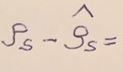 ρₛ - ρ̂ₛ =